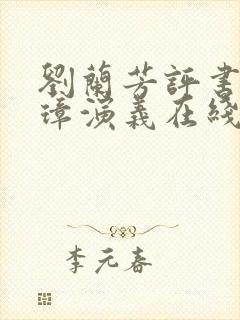 劉蘭芳評書
璋演義在綫
李元春